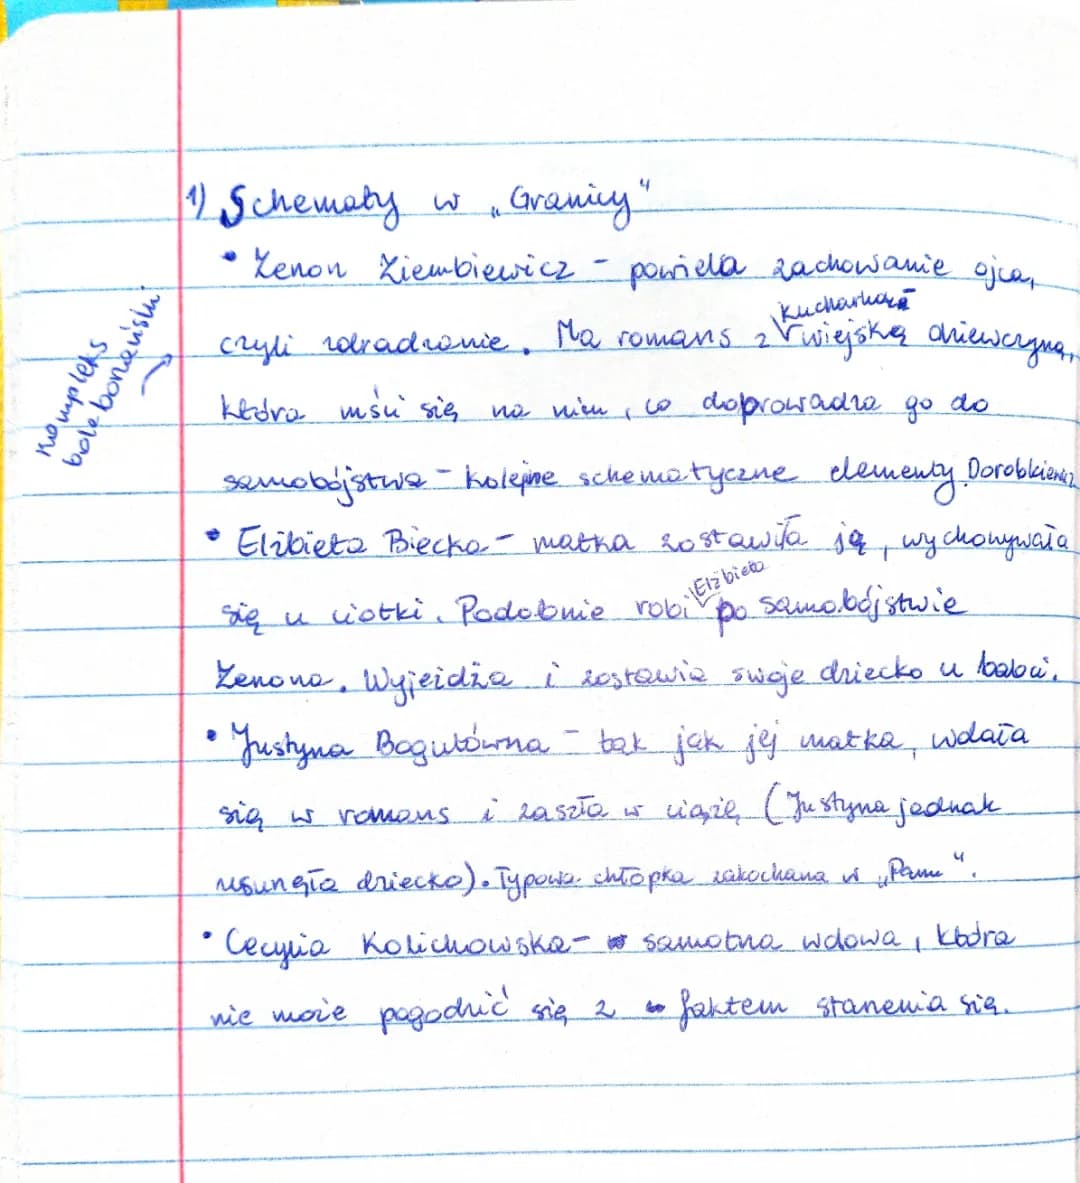 1) Schematy w „Granicy"
• Zenon Ziembiewicz - powiela zachowanie ojca,
kucharką
czyli zdradzanie. Ma romans z wiejską dziewczyną,
Kompleks
boleborzański
która mści się na nim, co doprowadza go do
samobójstwa - kolejne schematyczne elementy. Dorobkiewicz
• Elżbieta Biecka - matka zostawiła ją, wychowywała
Elżbieta
się u ciotki. Podobnie robi po samobójstwie
Zenona. Wyjeżdża i zostawia swoje dziecko u babci.
• Justyna Bogutówna - tak jak jej matka, wdała
się w romans i zaszła w ciążę (Justyna jednak
usunęła dziecko). Typowa chłopka zakochana w „Panu".
• Cecylia Kolichowska - samotna wdowa, która
nie może pogodzić się z faktem starzenia się.